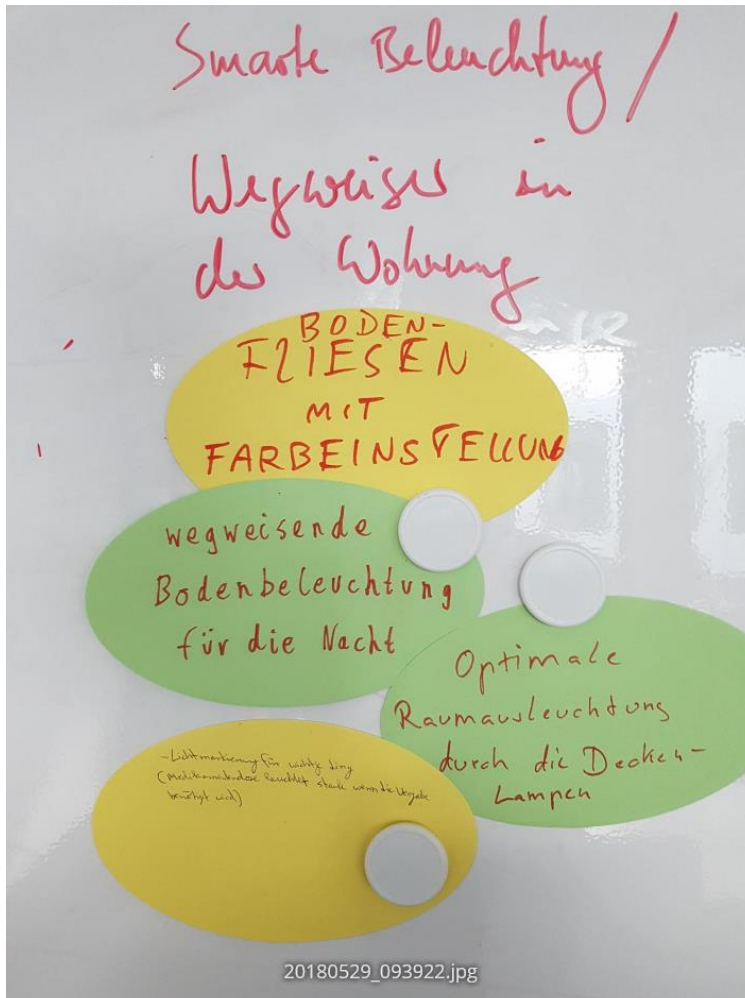 Smarte Beleuchtung /
Wegweiser in
der Wohnung
BODEN-
FLIESEN
MIT
FARBEINSTELLUNG
wegweisende
Bodenbeleuchtung
für die Nacht
Optimale
Raumausleuchtung
durch die Decken-
Lampen
-Lichtmarkierung für wichtige Ding
(Medikamentendose leuchtet stark wenn die Vergabe
benötigt wird)
20180529_093922.jpg